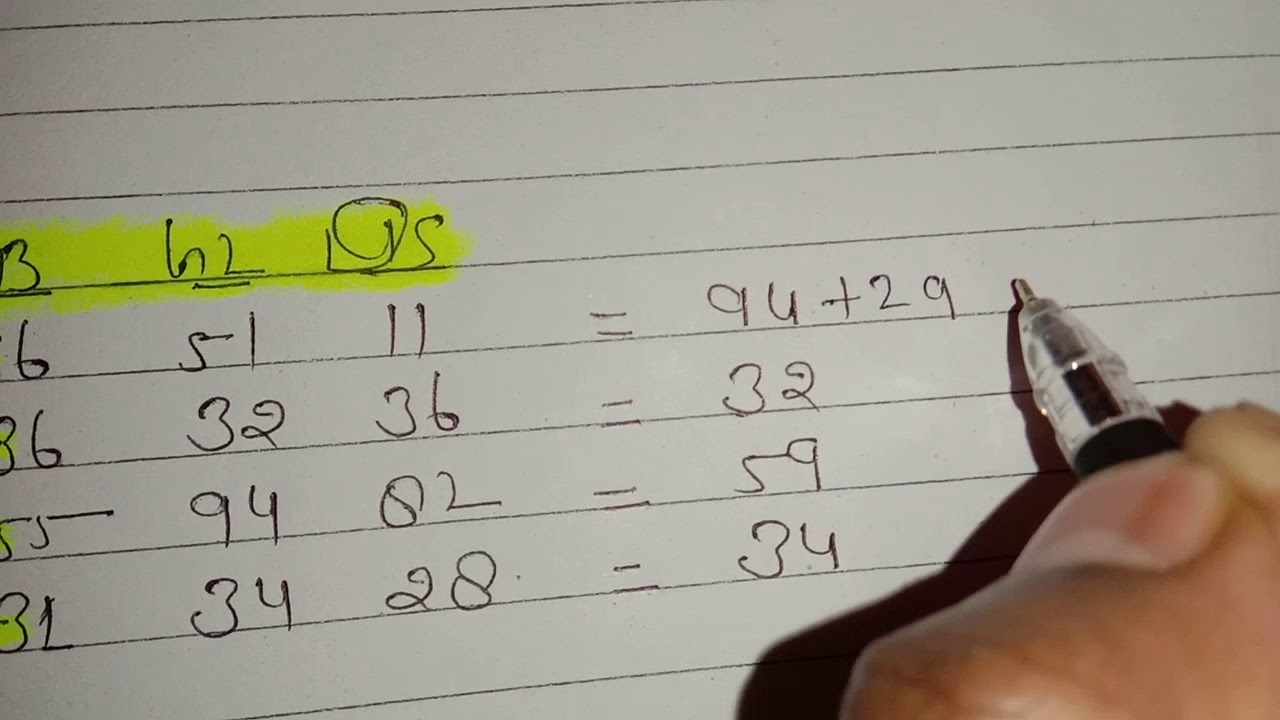 B h2 US
6 51 11 = 94+29
36 32 36 = 32
55 94 02 = 59
31 34 28 = 34